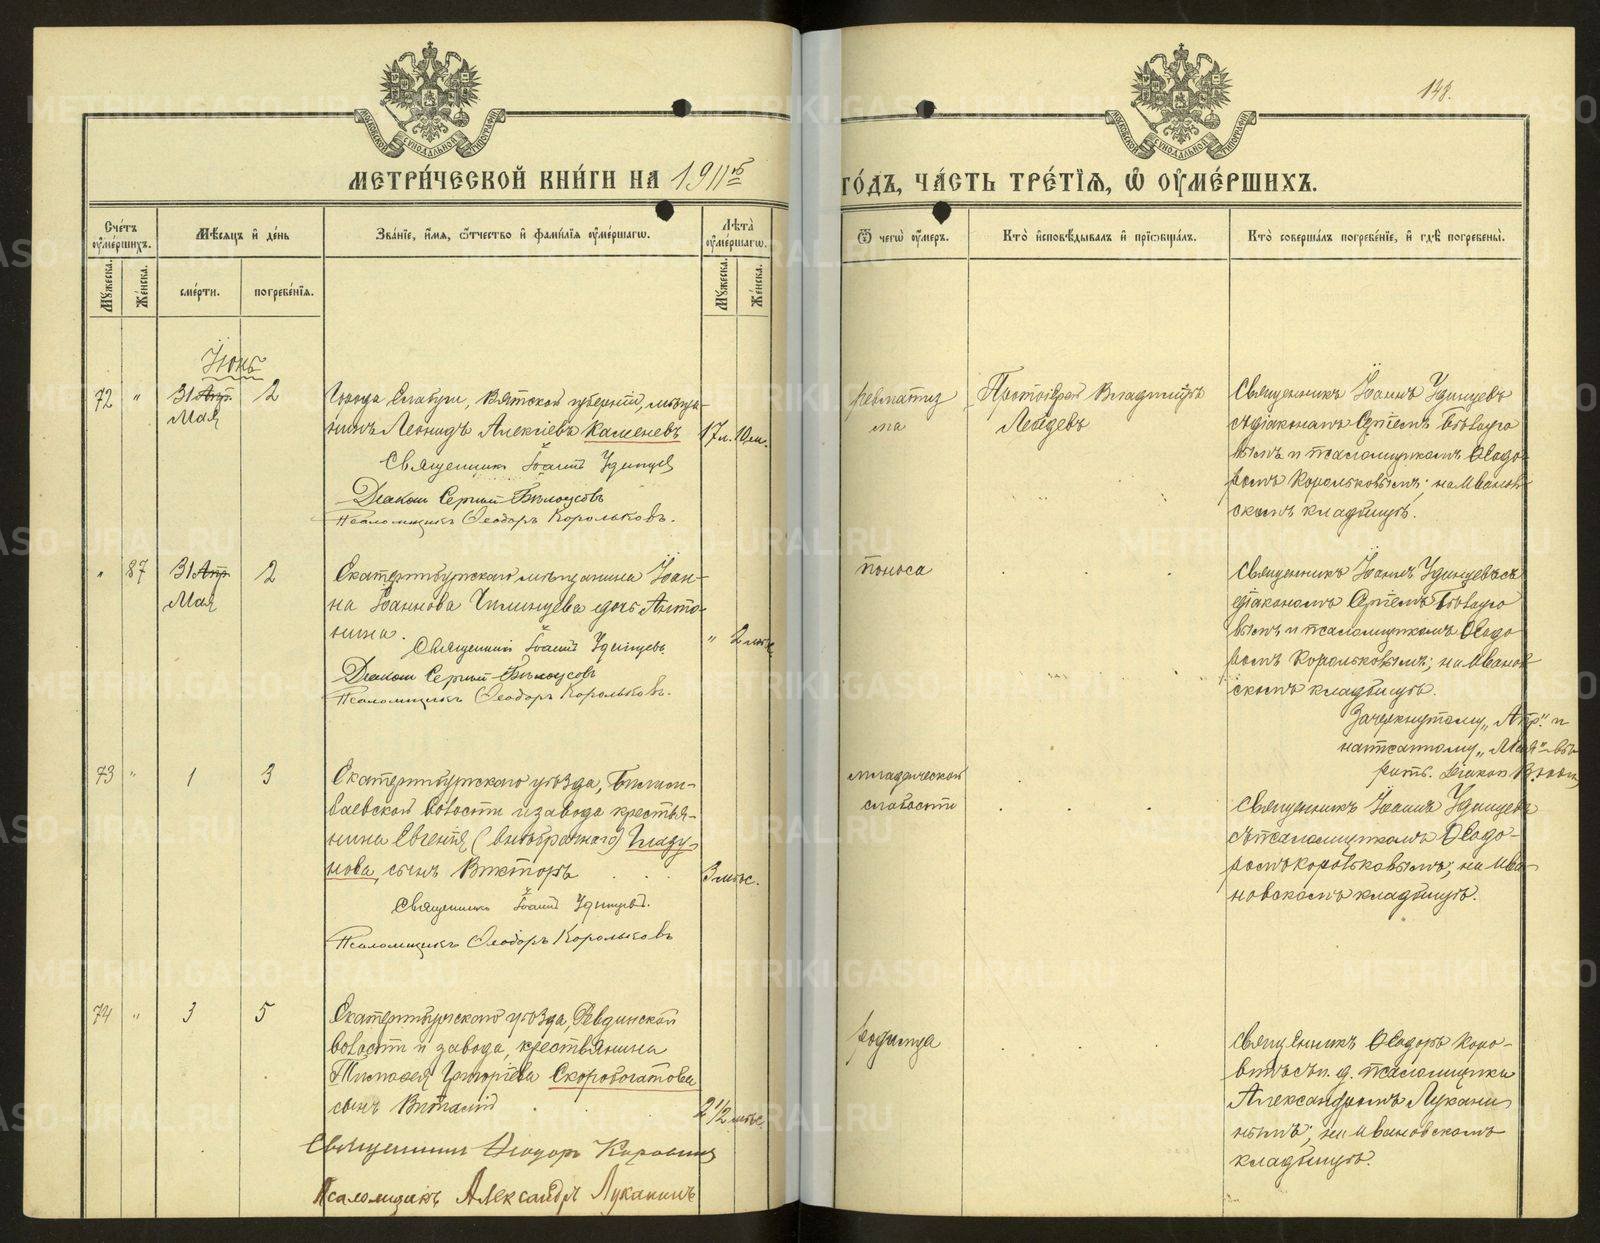 148.
МЕТРИ́ЧЕСКОЙ КНИ́ГИ НА 1911й
ГО́ДЪ, ЧА́СТЬ ТРЕ́ТІѦ, Ѿ ОУМЕ́РШИХЪ.
Сче́тъ оуме́ршихъ.
Мѣ́сяцъ и де́нь
Зва́ніе, и́мѧ, ѻ́тчество и фами́лія оуме́ршагѡ.
Лѣ́та оуме́ршагѡ.
Ѿ чегѡ̀ оу́меръ.
Кто̀ исповѣ́дывалъ и прїѡбща́лъ.
Кто̀ соверша́лъ погребе́нїе, и гдѣ̀ погребены̀.
Му́жеска.
Же́нска.
сме́рти.
погребе́нїѧ.
Му́жеска.
Же́нска.
Іюнь
72 " 31 Апр. 2
Мая
Города Елабуги, Вятской губерніи, мѣща-
нинъ Леонидъ Алексіевъ Каменевъ 17 л. 10 м.
Священникъ Іоаннъ Удинцев
Діаконъ Сергий Бѣлоусовъ
Псаломщикъ Ѳеодоръ Корольковъ.
ревматиз
ма
Протоіерей Владиміръ
Лебедевъ
Священникъ Іоаннъ Удинцевъ
съ діакономъ Сергіемъ Бѣлоусо
вымъ и псаломщикомъ Ѳеодо-
ромъ Корольковымъ; на Иванов-
скомъ кладбищѣ.
" 87 31 Апр 2
Мая
Екатеринбургскаго мѣщанина Іоан-
на Іоаннова дочь Анто-
нина. " 2 мѣс.
Священникъ Іоаннъ Удинцевъ.
Діаконъ Сергий Бѣлоусовъ
Псаломщикъ Ѳеодоръ Корольковъ.
поноса
Священникъ Іоаннъ Удинцевъ съ
діакономъ Сергіемъ Бѣлоусо
вымъ и псаломщикомъ Ѳеодо
ромъ Корольковымъ; на Иванов-
скомъ кладбищѣ.
Зачеркнутому „Апр." и
написанному „Мая" вѣ-
рить. Діакон
73 " 1 3
Екатеринбургскаго уѣзда, Билим-
баевской волости и завода крестья-
нина Евгенія (внѣбрачнаго) Гладу-
нова, сынъ Викторъ 3 мѣс.
Священникъ Іоаннъ Удинцевъ.
Псаломщикъ Ѳеодоръ Корольковъ
младенческой
слабости
Священникъ Іоаннъ Удинцевъ
съ псаломщикомъ Ѳеодо-
ромъ Корольковымъ; на Ива-
новскомъ кладбищѣ.
74 " 3 5
Екатеринбургскаго уѣзда, Ревдинской
волости и завода, крестьянина
Тимоѳея Григоріева Скоробогатова
сынъ Виталій 2 1/2 мѣс.
Священникъ Ѳеодоръ Коровинъ
Псаломщикъ Александръ Луканинъ
родимца
Священникъ Ѳеодоръ Коро-
винъ съ и. д. псаломщика
Александромъ Лукани
нымъ; на Ивановскомъ
кладбищѣ.
METRIKI.GASO-URAL.RU